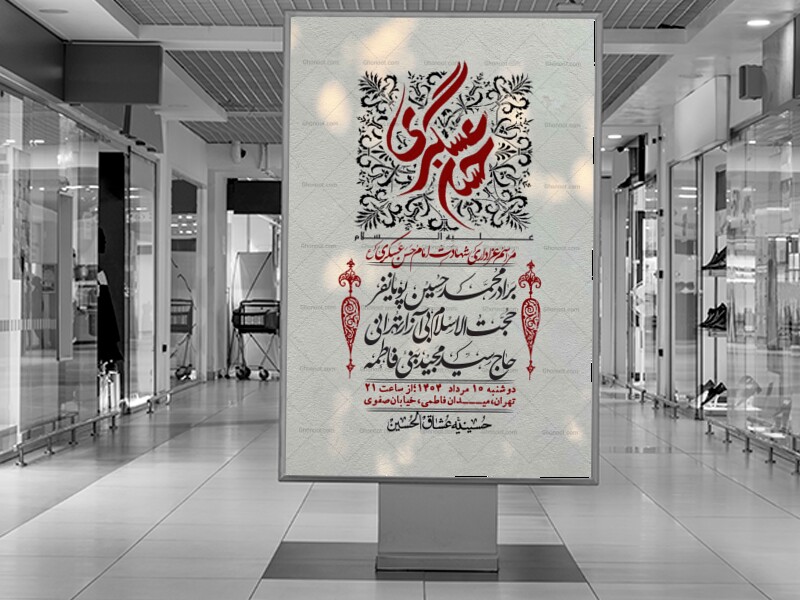 حسن عسکری
علیه السلام
مراسم عزاداری شهادت امام حسن عسکری (ع)
برادر محمد حسین پویانفر
حجت الاسلام بی آزار تهرانی
حاج سید مجید بنی فاطمه
دوشنبه ۱۵ مرداد ۱۴۰۴؛ از ساعت ۲۱
تهران، میدان فاطمی، خیابان صفوی
حسینیه عشاق الحسین